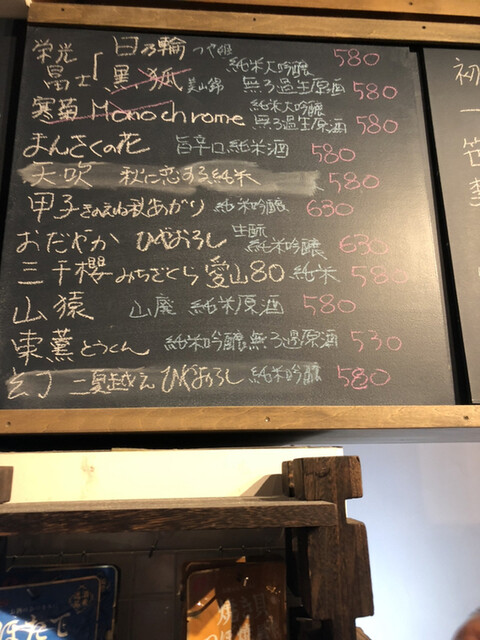 栄光冨士「日乃輪 つや姫 純米大吟醸 580
黒狐 美山錦 無ろ過生原酒 580
寒菊 Monochrome 純米大吟醸 無ろ過生原酒 580
まんさくの花 旨辛口純米酒 580
天吹 秋に恋する純米 580
甲子きのえね秋あがり 純米吟醸 630
おだやか ひやおろし 生酛 純米吟醸 630
三千櫻 みちざくら 愛山80 純米 580
山猿 山廃 純米原酒 580
東薫とうくん 純米吟醸 無ろ過原酒 530
幻 二夏越え ひやおろし 純米吟醸 580
初
一
笹
ほたて